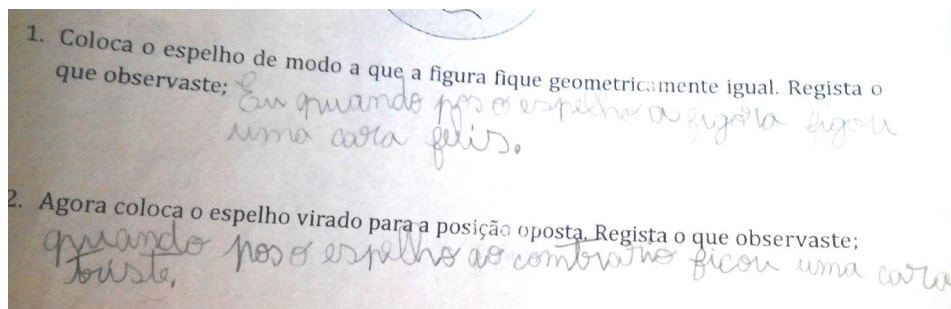 1. Coloca o espelho de modo a que a figura fique geometricamente igual. Regista o
que observaste; Eu quando pos o espelho a figora figou
uma cara felis.
2. Agora coloca o espelho virado para a posição oposta. Regista o que observaste;
quando pos o espelho ao contrario ficou uma cara
triste,